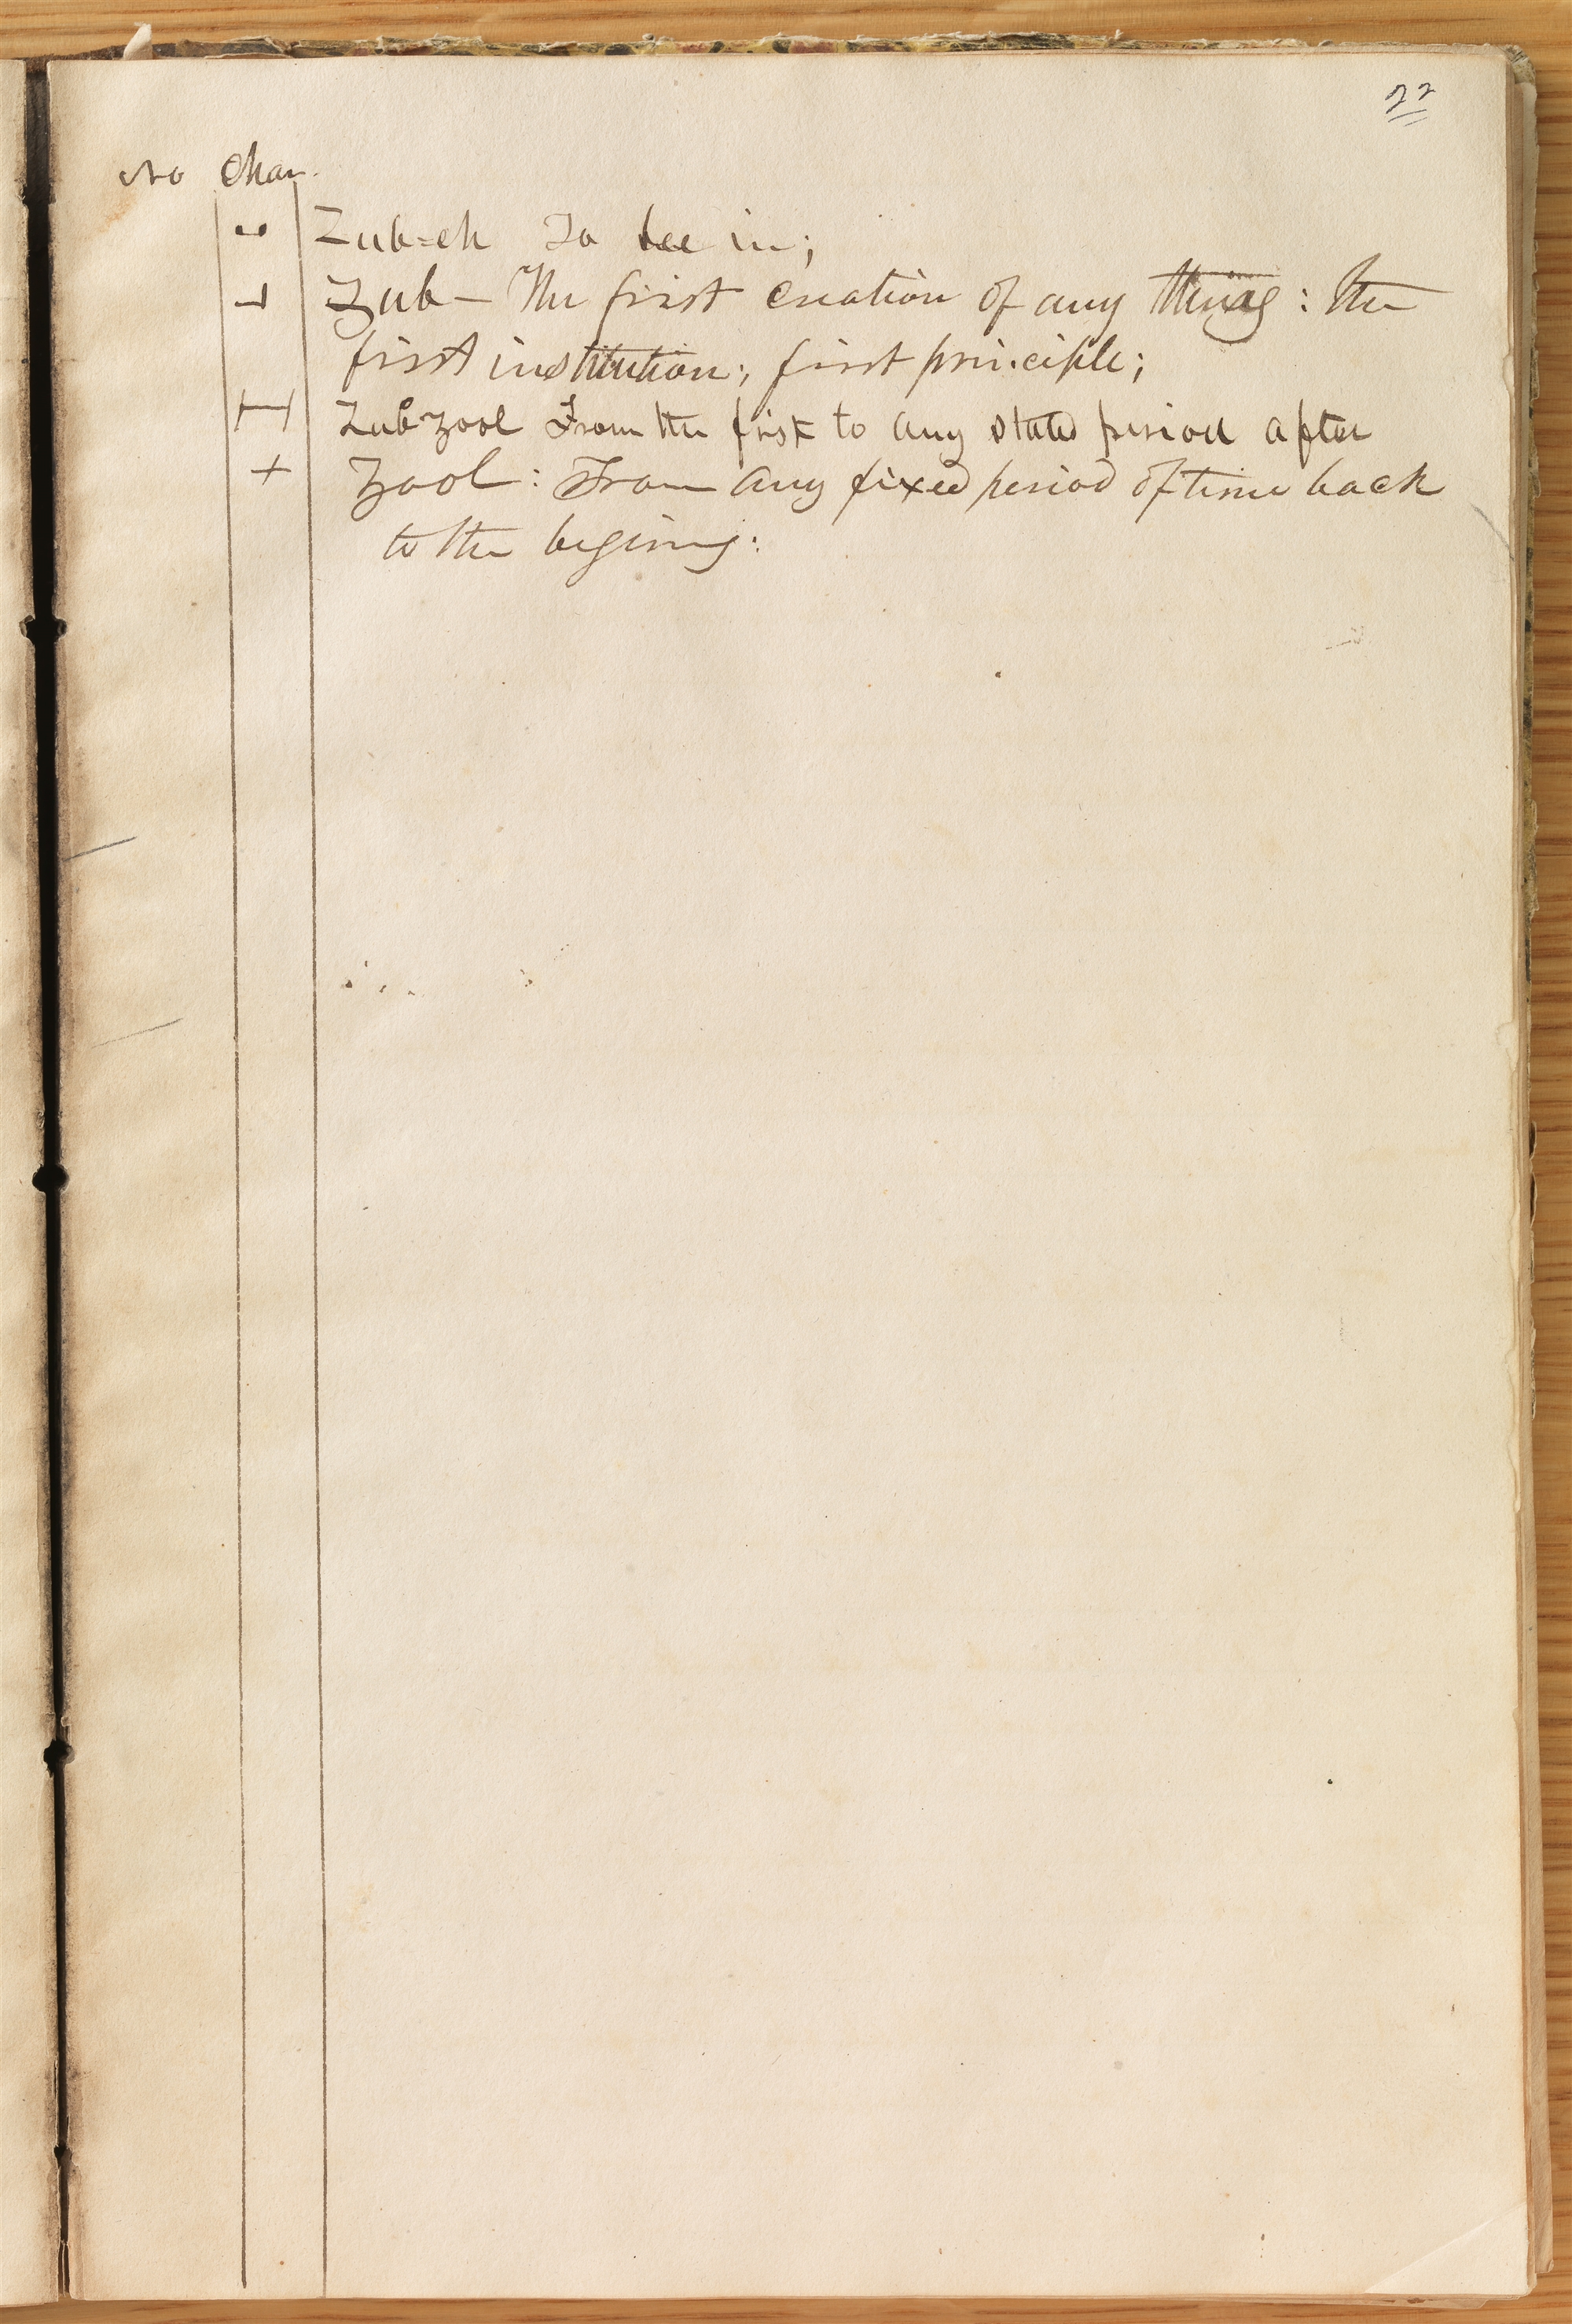 22
No Char.
Zub=eh To bee in;
Zub— The first creation of any thing: the
first institution; first principle;
Zub zool From the first to any stated period after
Zool: From any fixed period of time back
to the begining: